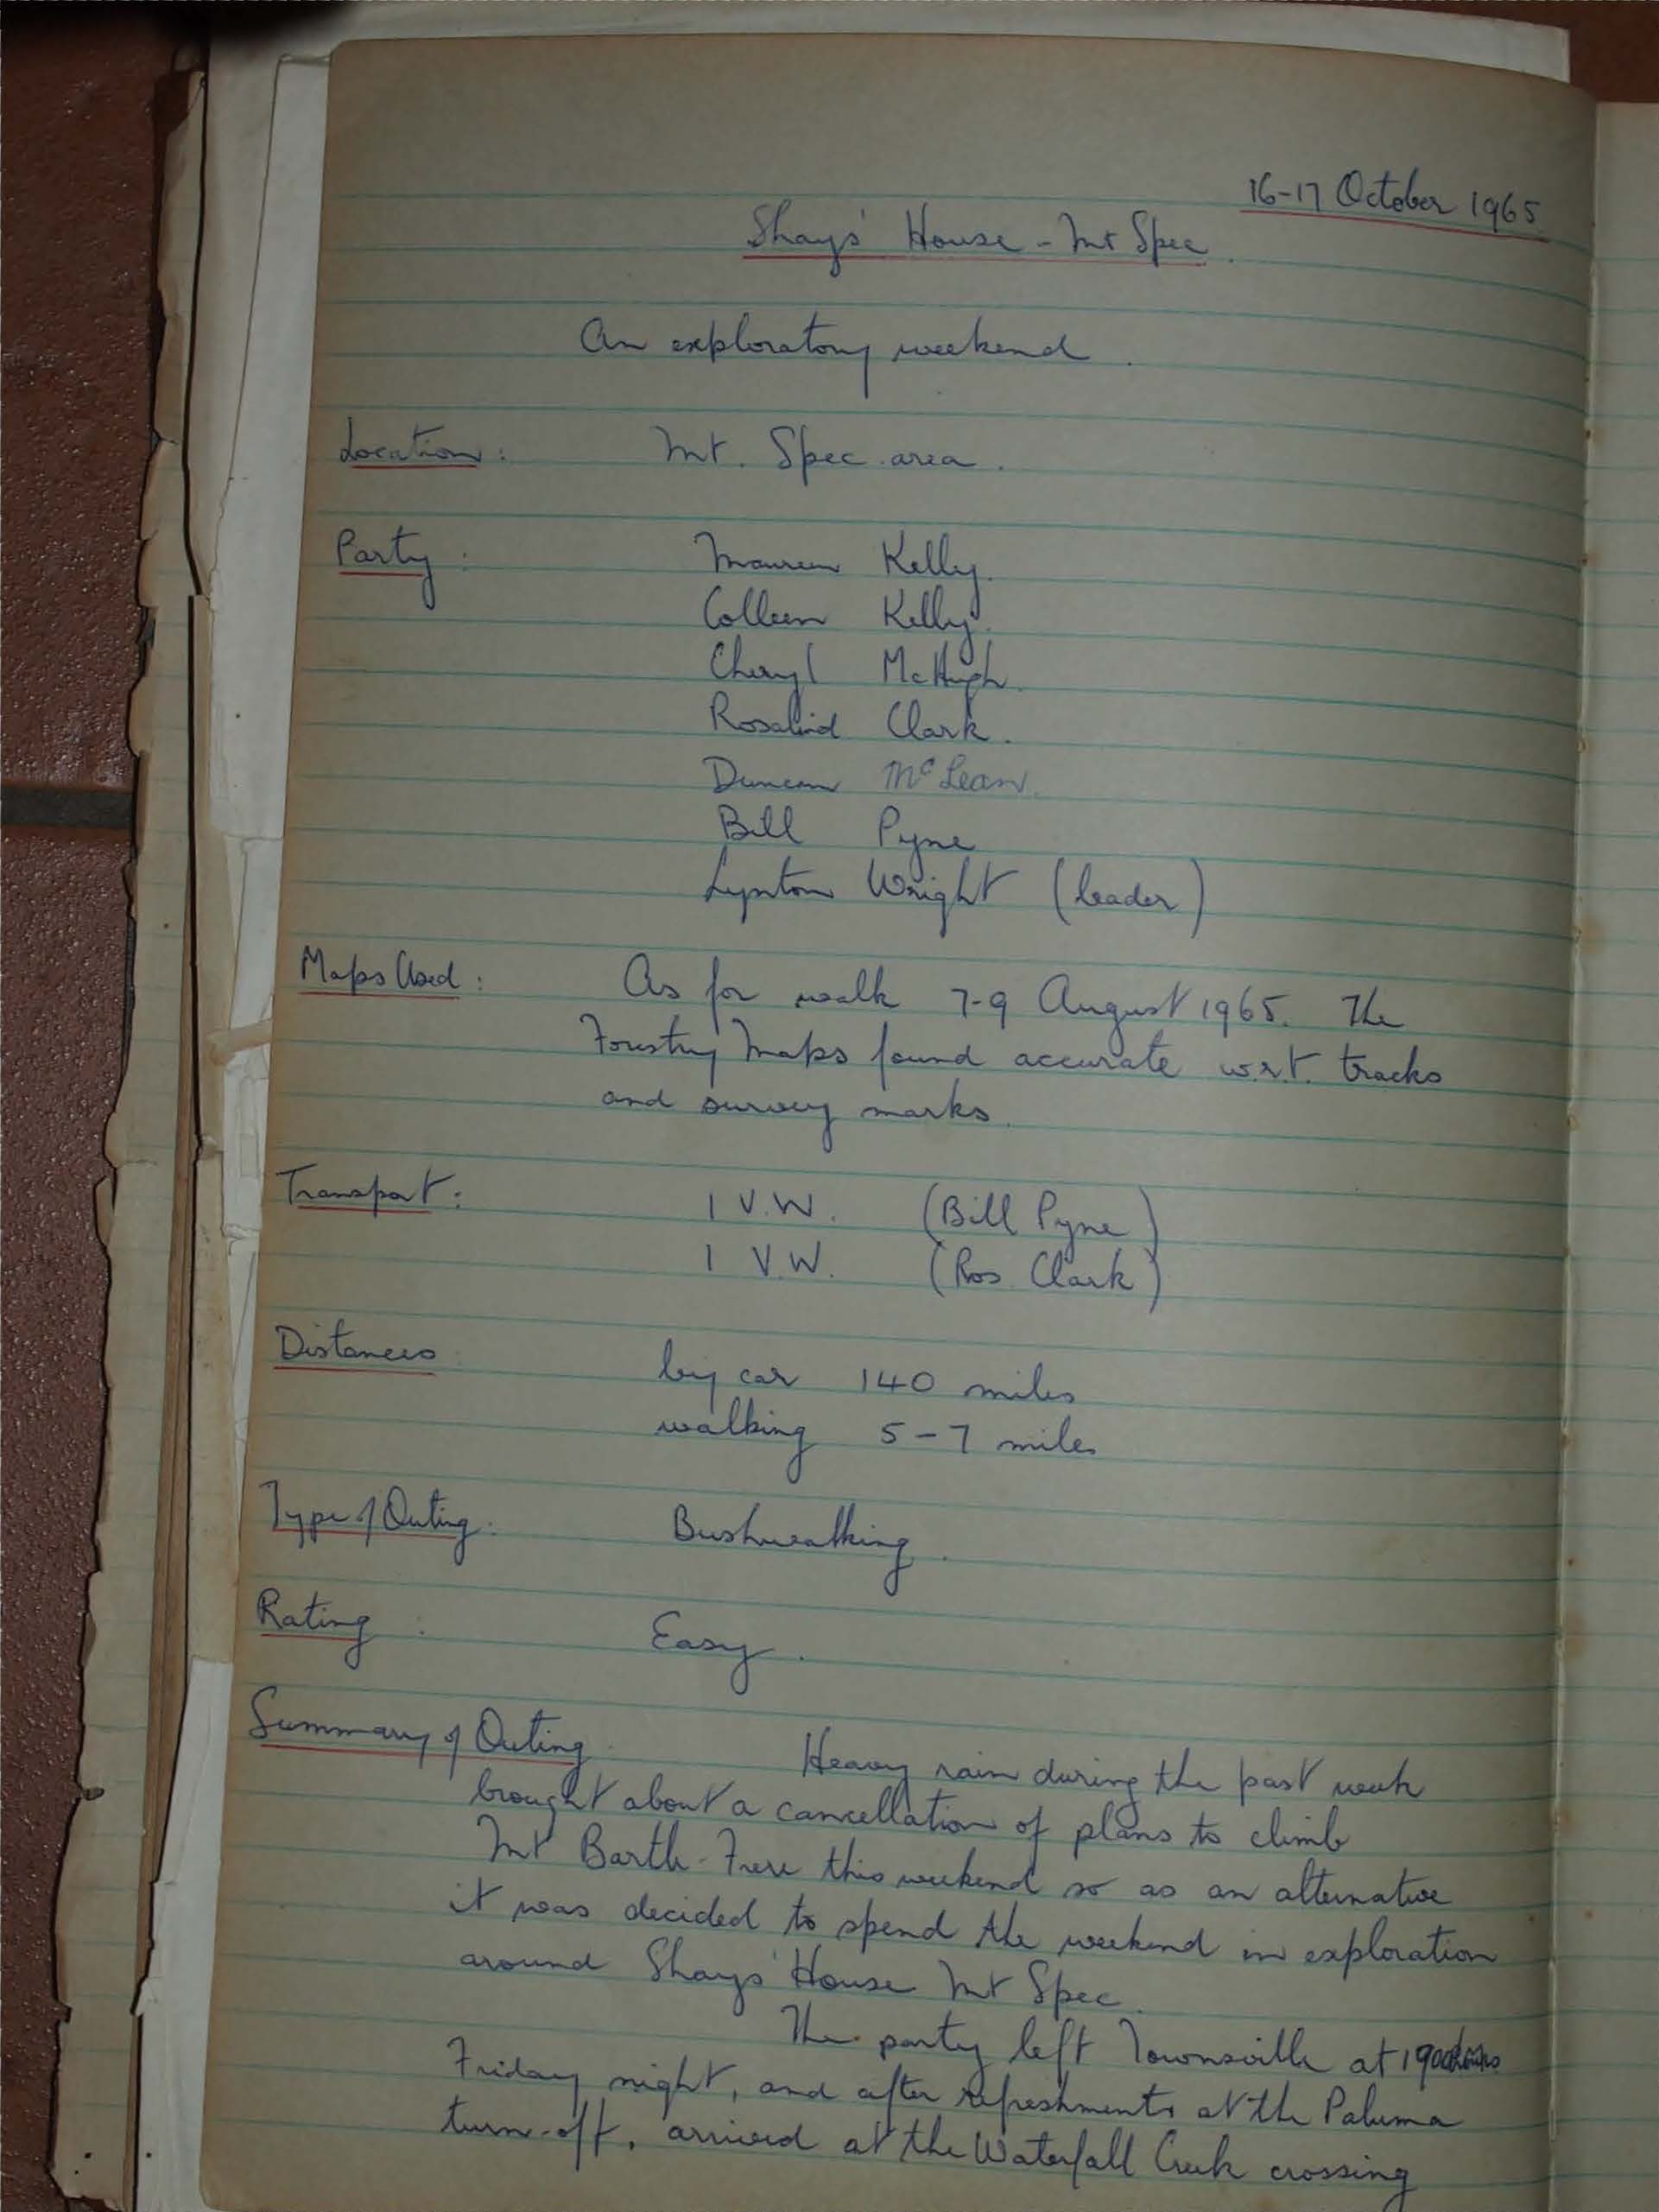 16-17 October 1965
Shays' House - Mt Spec.
An exploratory weekend.
Location: Mt. Spec area.
Party: Maureen Kelly.
Colleen Kelly.
Cheryl McHugh.
Rosalind Clark.
Duncan McLean.
Bill Pyne
Lynton Wright (leader)
Maps Used: As for walk 7-9 August 1965. The
Forestry Maps found accurate w.r.t. tracks
and survey marks.
Transport: 1 V.W. (Bill Pyne)
1 V.W. (Ros. Clark)
Distances by car 140 miles
walking 5-7 miles
Type of Outing: Bushwalking.
Rating: Easy.
Summary of Outing. Heavy rain during the past week
brought about a cancellation of plans to climb
Mt Bartle-Frere this weekend so as an alternative
it was decided to spend the weekend in exploration
around Shays' House Mt Spec.
The party left Townsville at 1900
Friday night, and after refreshments at the Paluma
turn-off, arrived at the Waterfall Creek crossing